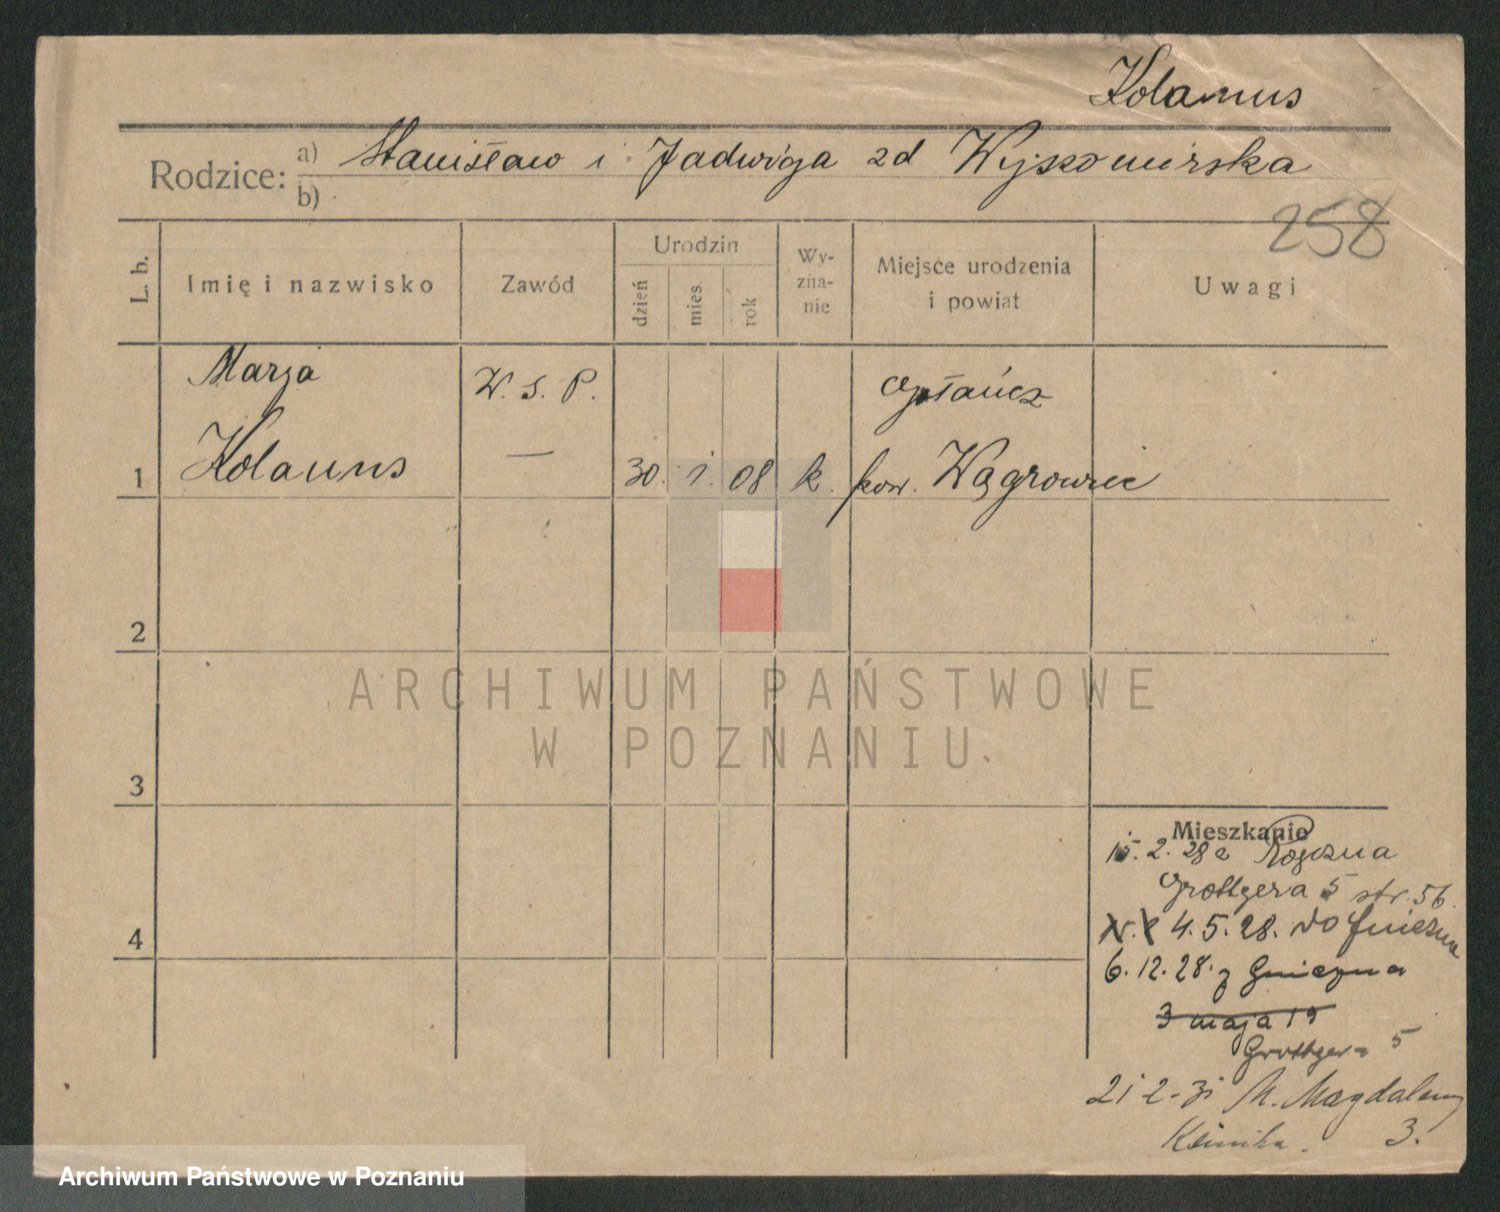 Kolanus
Rodzice: a) Stanisław i Jadwiga zd Wyszomirska
b)
258
L. b.
Imię i nazwisko
Zawód
Urodzin
dzień
mies.
rok
Wy-
zna-
nie
Miejsce urodzenia
i powiat
Uwagi
Marja
W. S. P.
1 Kolanus — 30. 1. 08 k. pow. Wągrowiec
2
ARCHIWUM PAŃSTWOWE
W POZNANIU
3
Mieszkanie
15. 2. 28 z Rogozna
Grottgera 5 str. 56.
4
4. 5. 28. do Gniezna
6. 12. 28. z Gniezna
3 maja 19
Grottgera 5
21 2 - 31 M. Magdaleny
Klinika. 3.
Archiwum Państwowe w Poznaniu